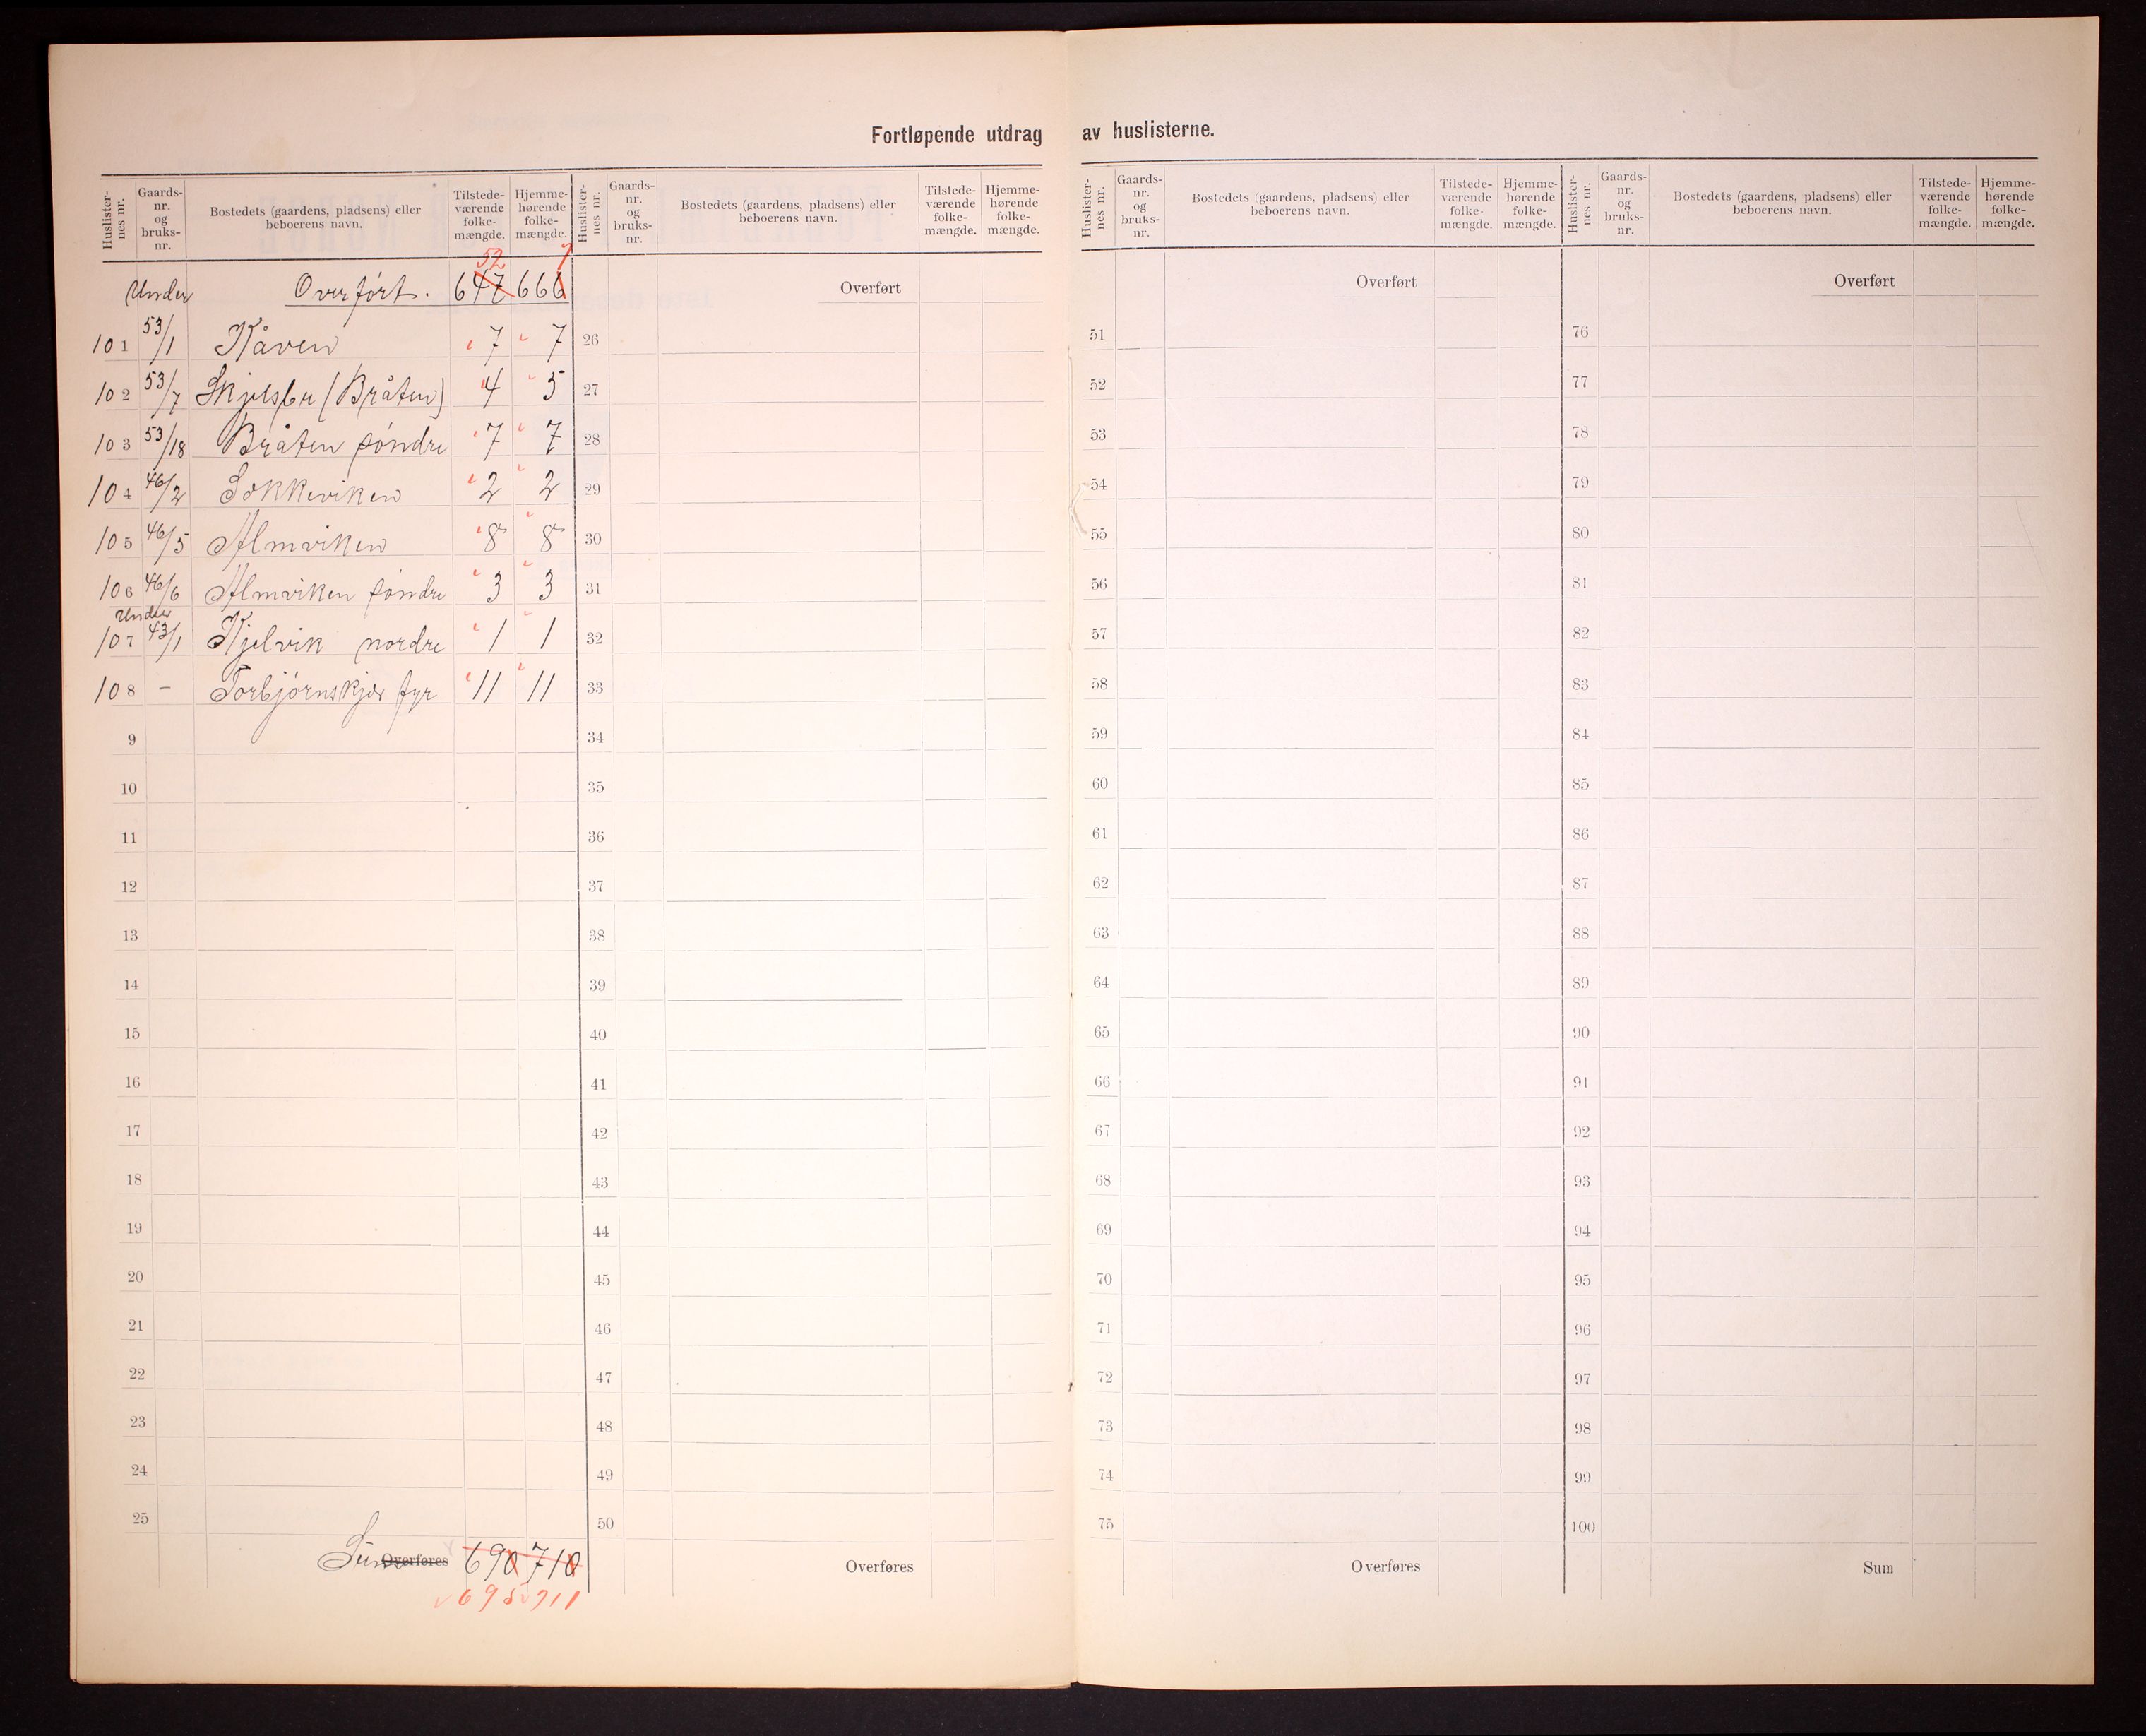 Fortløpende utdrag av huslisterne.
Huslister-nes nr. Gaards-nr. og bruks-nr. Bostedets (gaardens, pladsens) eller beboerens navn. Tilstede-værende folke-mængde. Hjemme-hørende folke-mængde.
Under Overført. 647 666
52 7
101 53/1 Kåven 7 7
102 53/7 (Bråten) 4 5
103 53/18 Bråten søndre 7 7
104 46/2 Sokkeviken 2 2
105 46/5 Almviken 8 8
106 46/6 Almviken søndre 3 3
Under
107 43/1 Kjelvik nordre 1 1
108 – Torbjørnskjær fyr 11 11
9
10
11
12
13
14
15
16
17
18
19
20
21
22
23
24
25
Sum Overføres 690 710
695 711
Huslister-nes nr. Gaards-nr. og bruks-nr. Bostedets (gaardens, pladsens) eller beboerens navn. Tilstede-værende folke-mængde. Hjemme-hørende folke-mængde.
Overført
26
27
28
29
30
31
32
33
34
35
36
37
38
39
40
41
42
43
44
45
46
47
48
49
50
Overføres
Huslister-nes nr. Gaards-nr. og bruks-nr. Bostedets (gaardens, pladsens) eller beboerens navn. Tilstede-værende folke-mængde. Hjemme-hørende folke-mængde.
Overført
51
52
53
54
55
56
57
58
59
60
61
62
63
64
65
66
67
68
69
70
71
72
73
74
75
Overføres
Huslister-nes nr. Gaards-nr. og bruks-nr. Bostedets (gaardens, pladsens) eller beboerens navn. Tilstede-værende folke-mængde. Hjemme-hørende folke-mængde.
Overført
76
77
78
79
80
81
82
83
84
85
86
87
88
89
90
91
92
93
94
95
96
97
98
99
100
Sum